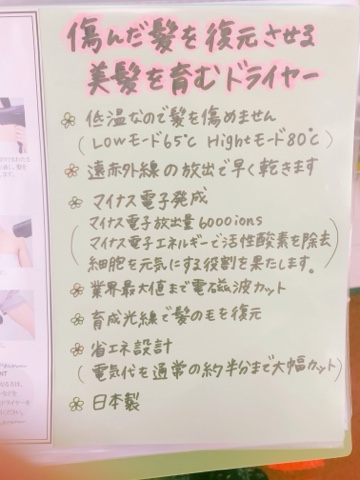 傷んだ髪を復元させる
美髪を育むドライヤー
低温なので髪を傷めません
(Lowモード65℃ Hightモード80℃)
遠赤外線の放出で早く乾きます
マイナス電子発成
マイナス電子放出量6000ions
マイナス電子エネルギーで活性酸素を除去
細胞を元気にする役割を果たします。
業界最大値まで電磁波カット
育成光線で髪の毛を復元
省エネ設計
(電気代を通常の約半分まで大幅カット)
日本製